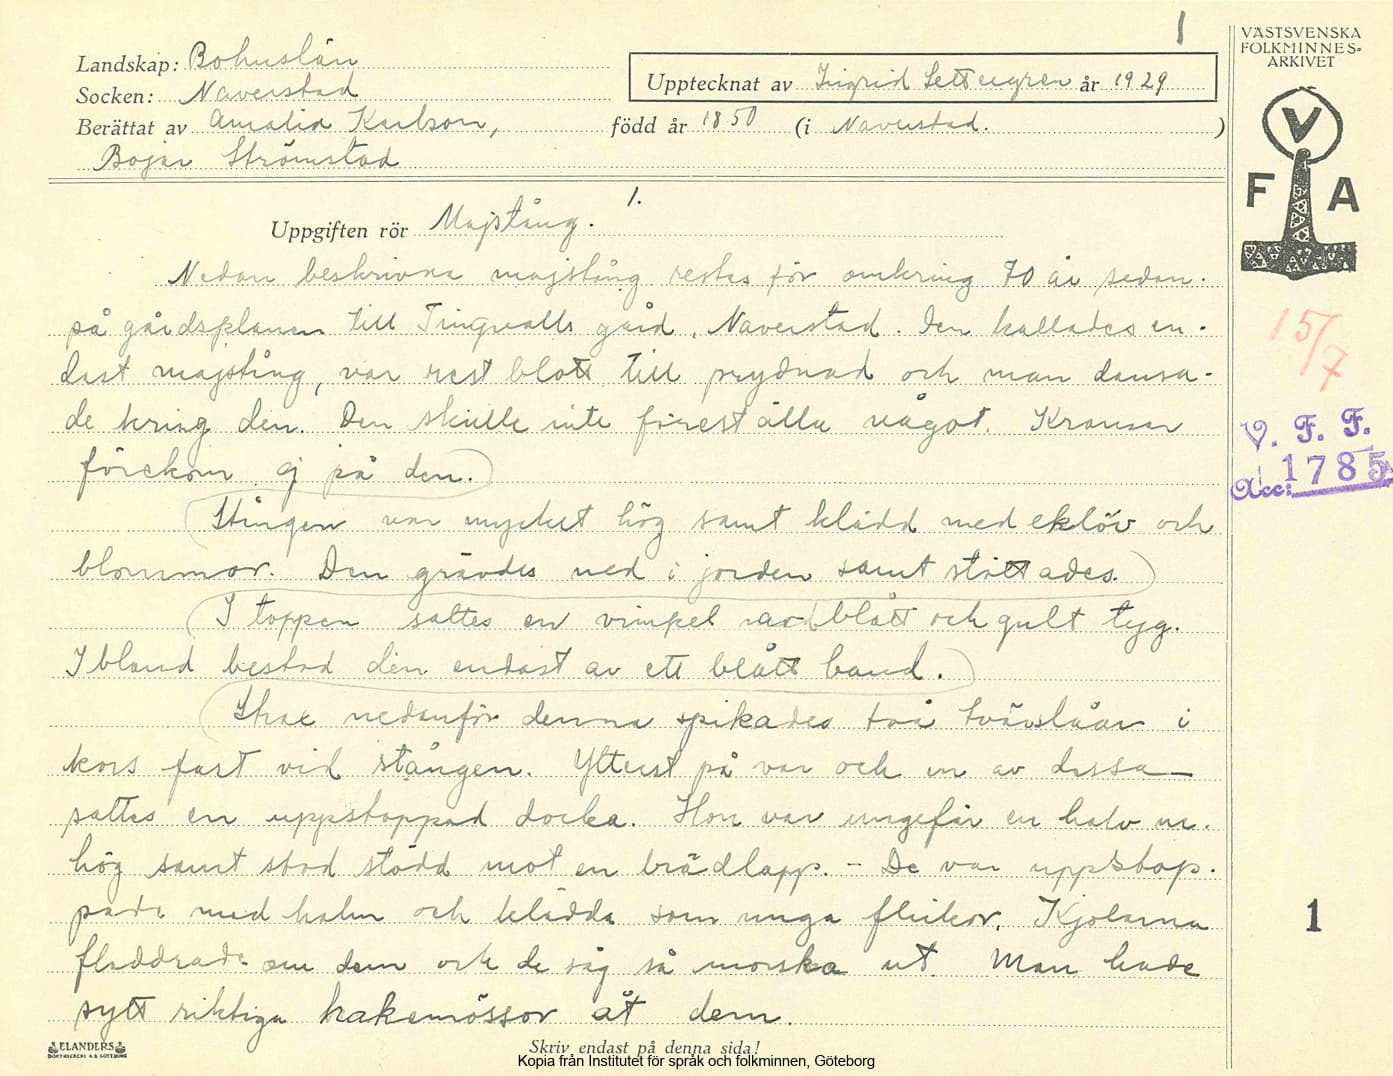 1
Landskap: Bohuslän
Socken: Naverstad
Upptecknat av Ingrid Settergren år 1929
Berättat av Amalia Karlson, född år 1850 (i Naverstad. )
Bojar Strömstad
1.
Uppgiften rör Majstång.
Nedan beskrivna majstång restes för omkring 70 år sedan
på gårdsplanen till Tingvalls gård, Naverstad. Den kallades en-
dast majstång, var rest blott till prydnad och man dansa-
de kring den. Den skulle inte föreställa något. Kransar
förekom ej på den.
Stången var mycket hög samt klädd med eklöv och
blommor. Den grävdes ned i jorden samt stöttades.
I toppen sattes en vimpel av blått och gult tyg.
Ibland bestod den endast av ett blått band.
Strax nedanför denna spikades två tvärslåar i
kors fast vid stången. Ytterst på var och en av dessa
sattes en uppstoppad docka. Hon var ungefär en halv m.
hög samt stod stödd mot en brädlapp. - De var uppstop-
pade med halm och klädda som unga flickor. Kjolarna
fladdrade om dem och de såg så morska ut. Man hade
sytt riktiga hakemössor åt dem.
ELANDERS
BOKTRYCKERI A.B. GÖTEBORG
Skriv endast på denna sida!
Kopia från Institutet för språk och folkminnen, Göteborg
VÄSTSVENSKA
FOLKMINNES-
ARKIVET
V
F A
15/7
V. F. F.
Acc: 1785
1